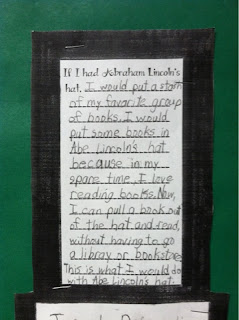 If I had Abraham Lincoln's
hat, I would put a stash
of my favorite group
of books. I would
put some books in
Abe Lincoln's hat
because in my
spare time, I love
reading books. Now,
I can pull a book out
of the hat and read,
without having to go
a libray or bookstore
This is what I would do
with Abe Lincoln's hat.